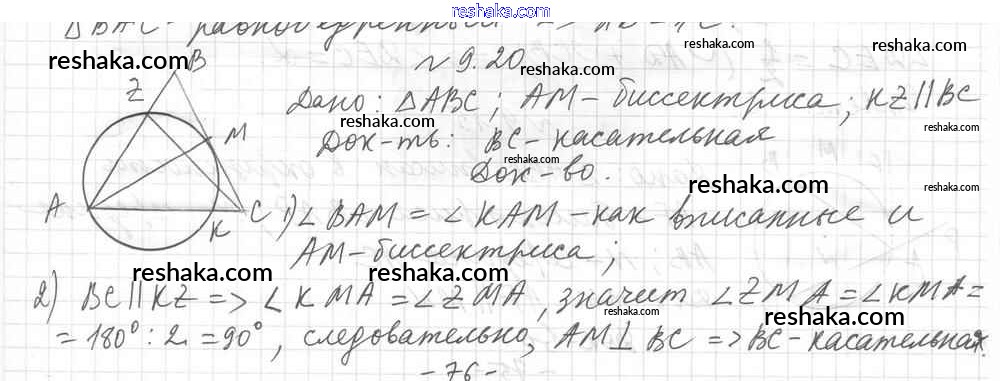 reshaka.com
△ВАС - равнобедренный =>
reshaka.com
reshaka.com
reshaka.com
reshaka.com
№ 9.20
reshaka.com
Дано: △ABC; AM - биссектриса; KZ || BC
reshaka.com
reshaka.com
Док-ть: BC - касательная
reshaka.com
Док-во.
reshaka.com
reshaka.com
B
Z
M
A
C
K
1) ∠BAM = ∠KAM - как вписанные и
reshaka.com
reshaka.com
AM - биссектриса;
reshaka.com
reshaka.com
reshaka.com
2) BC || KZ => ∠KMA = ∠ZMA, значит ∠ZMA = ∠KMA =
reshaka.com
reshaka.com
= 180° : 2 = 90°, следовательно, AM ⊥ BC => BC - касательная.
reshaka.com
reshaka.com
- 76 -